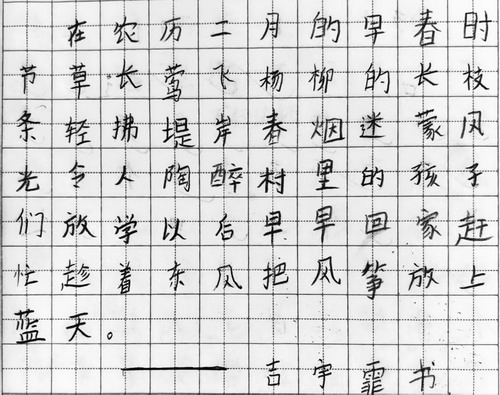 在农历二月的早春时
节草长莺飞杨柳的长枝
条轻拂堤岸春烟迷蒙风
光令人陶醉村里的孩子
们放学以后早早回家赶
忙趁着东风把风筝放上
蓝天。
——吉宇霏书